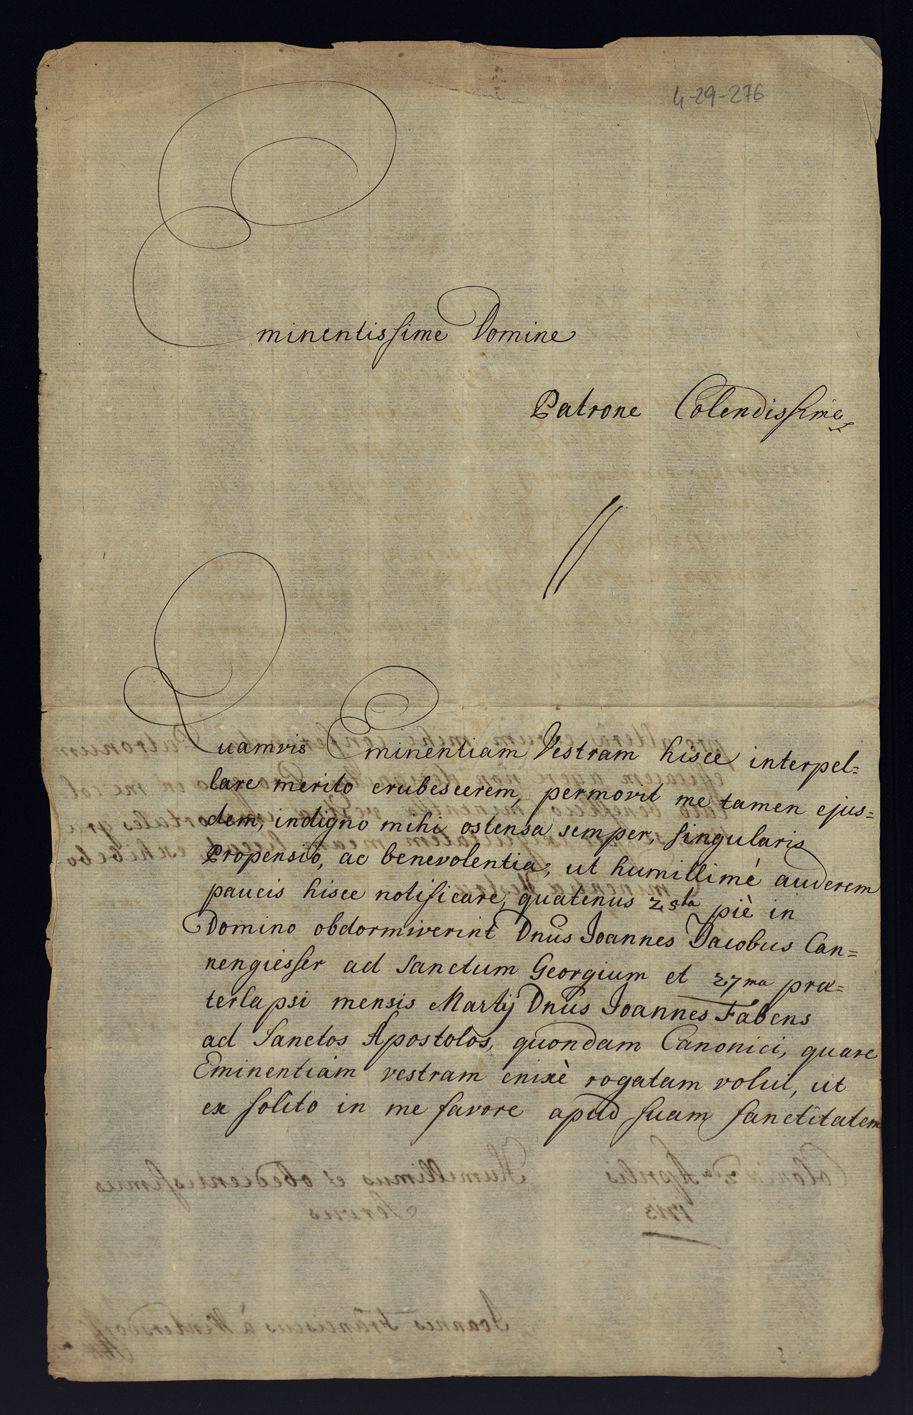 4-29-276
Eminentissime Domine
Patrone Colendissime
Quamvis Eminentiam Vestram hisce interpel=
lare merito erubescerem, permovit me tamen ejus=
dem, indigno mihi ostensa semper, singularis
Propensio, ac benevolentia, ut humillimè auderem
paucis hisce notificare, quatenus 25ta piè in
Domino obdormiverint Dnus Joannes Jacobus Can=
nengiesser ad Sanctum Georgium et 27ma præ=
terlapsi mensis Martij Dnus Joannes Fabens
ad Sanctos Apostolos, quondam Canonici, quare
Eminentiam vestram enixè rogatam volui, ut
ex solito in me favore apud suam sanctitatem